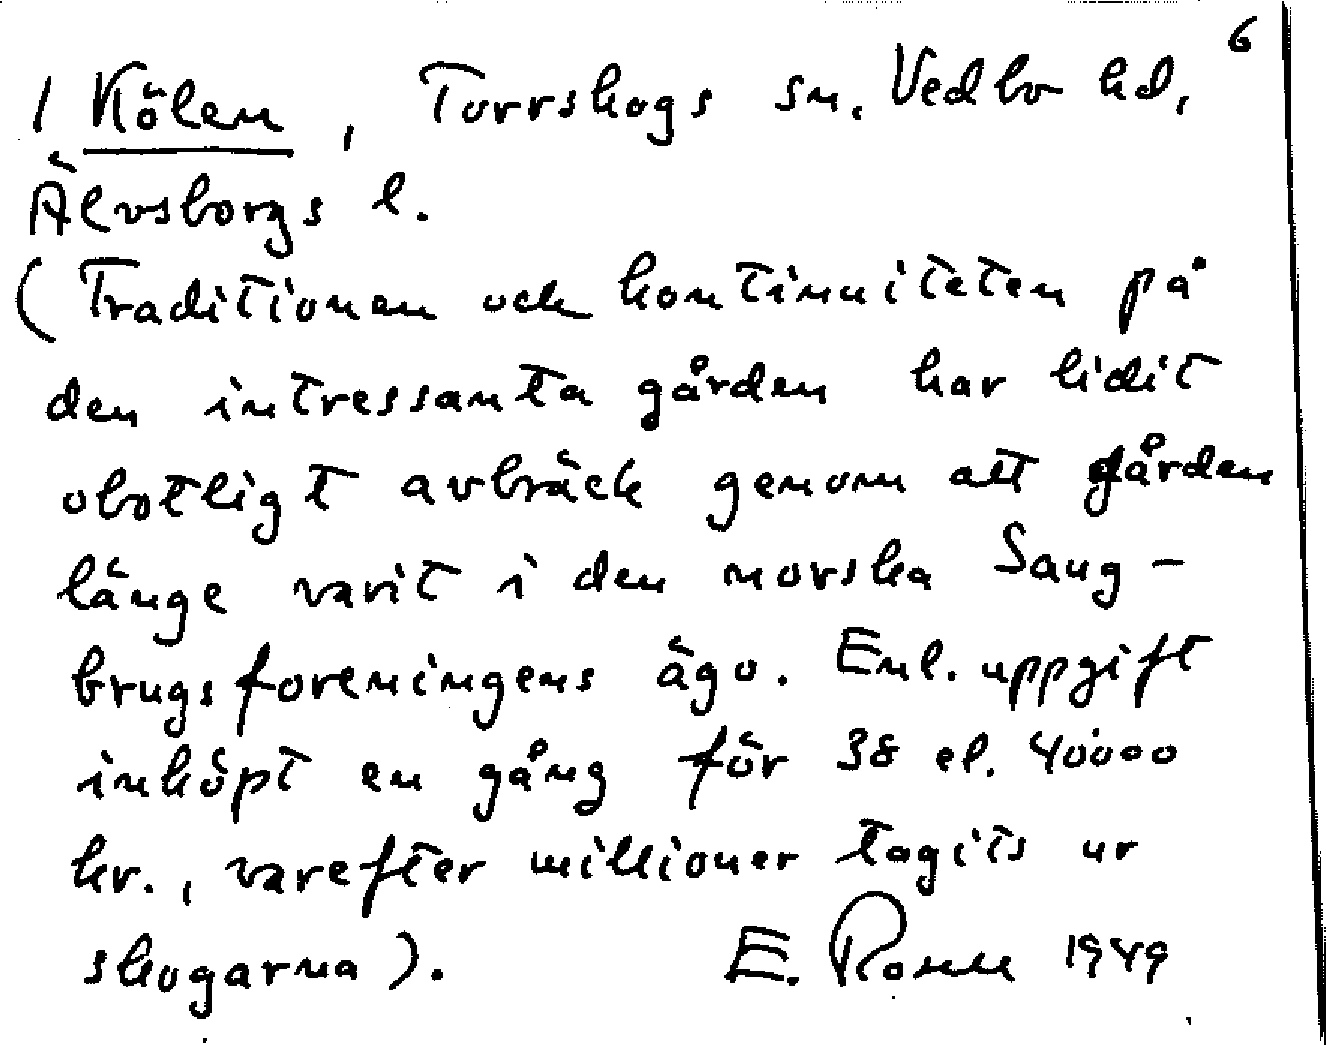 6
1 Kölen, Torrskogs sn. Vedbo hd,
Älvsborgs l.
(Traditionen och kontinuiteten på
den intressanta gården har lidit
obotligt avbräck genom att gården
länge varit i den norska Saug-
brugsforeningens ägo. Enl. uppgift
inköpt en gång för 38 el. 40000
kr., varefter millioner tagits ur
skogarna).
E. 1949